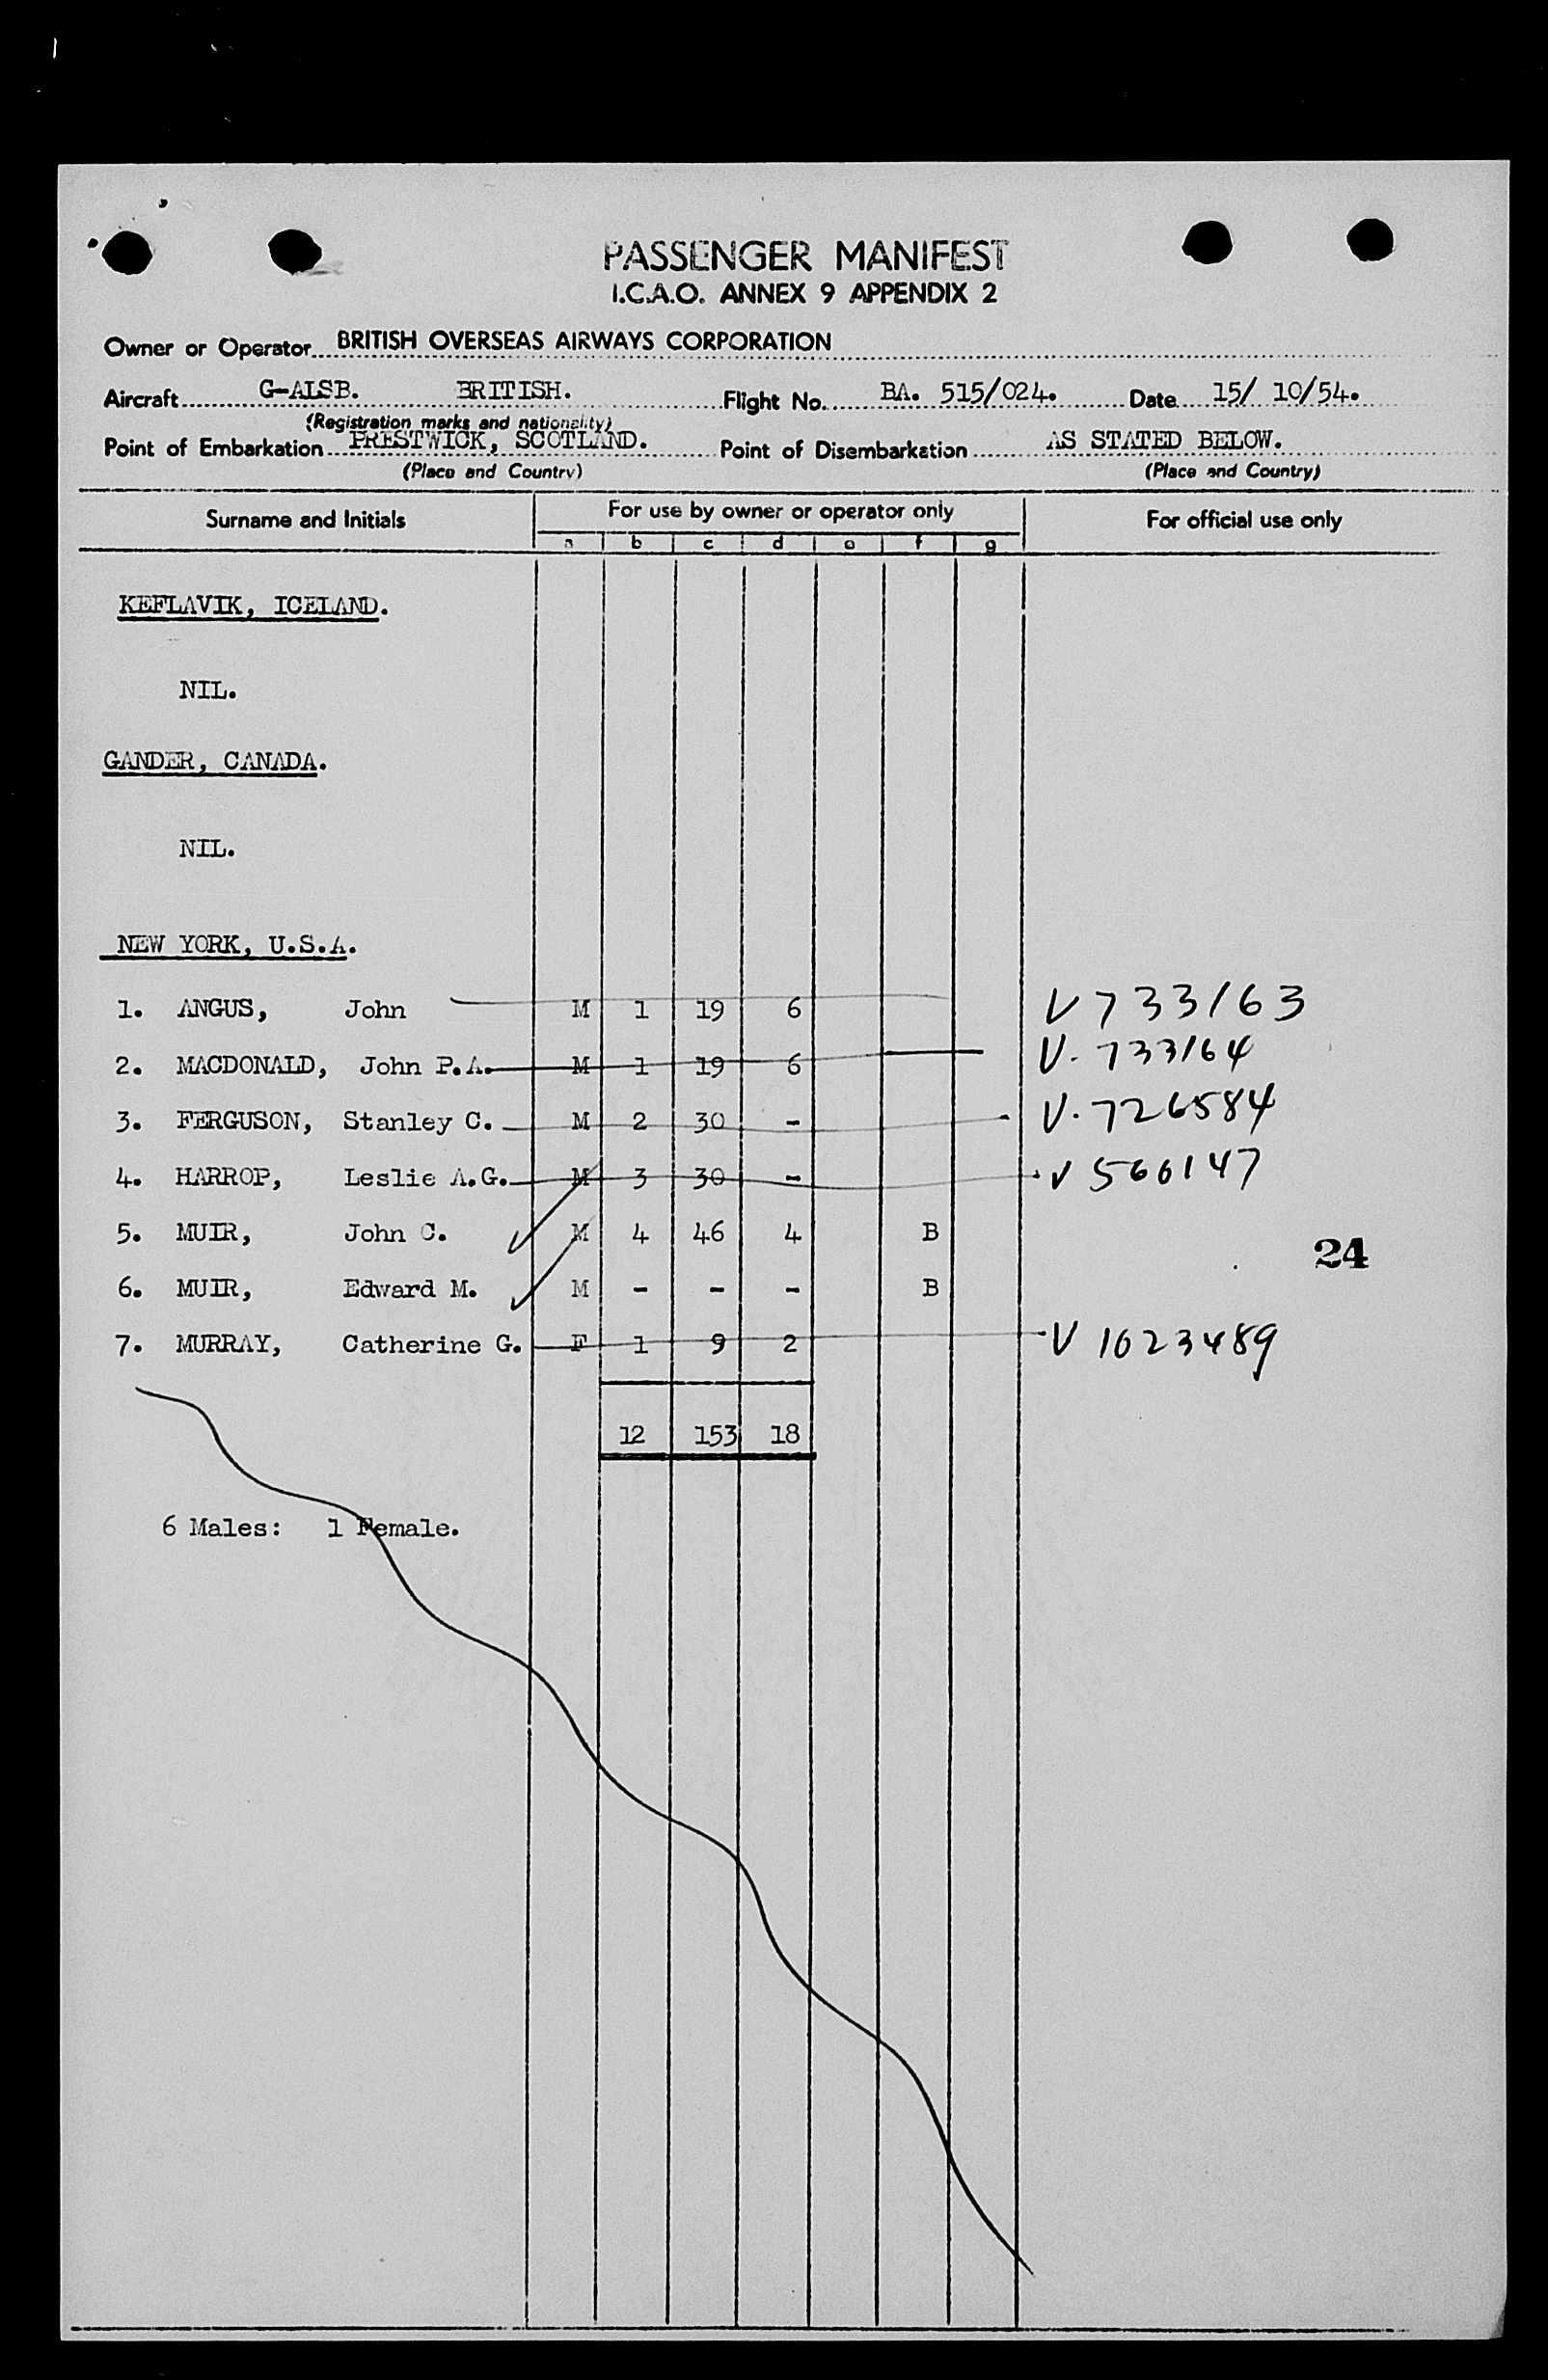 PASSENGER MANIFEST
I.C.A.O. ANNEX 9 APPENDIX 2
Owner or Operator BRITISH OVERSEAS AIRWAYS CORPORATION
Aircraft G-ALSB. BRITISH. Flight No. BA. 515/024. Date 15/ 10/54.
(Registration marks and nationality)
Point of Embarkation PRESTWICK, SCOTLAND. Point of Disembarkation AS STATED BELOW.
(Place and Country) (Place and Country)
Surname and Initials For use by owner or operator only For official use only
a b c d e f g
KEFLAVIK, ICELAND.
NIL.
GANDER, CANADA.
NIL.
NEW YORK, U.S.A.
1. ANGUS, John M 1 19 6 V 733163
2. MACDONALD, John P.A. M 1 19 6 V. 733164
3. FERGUSON, Stanley C. M 2 30 - V. 726584
4. HARROP, Leslie A.G. M 3 30 - V 566147
5. MUIR, John C. M 4 46 4 B
24
6. MUIR, Edward M. M - - - B
7. MURRAY, Catherine G. F 1 9 2 V 1623489
12 153 18
6 Males: 1 Female.